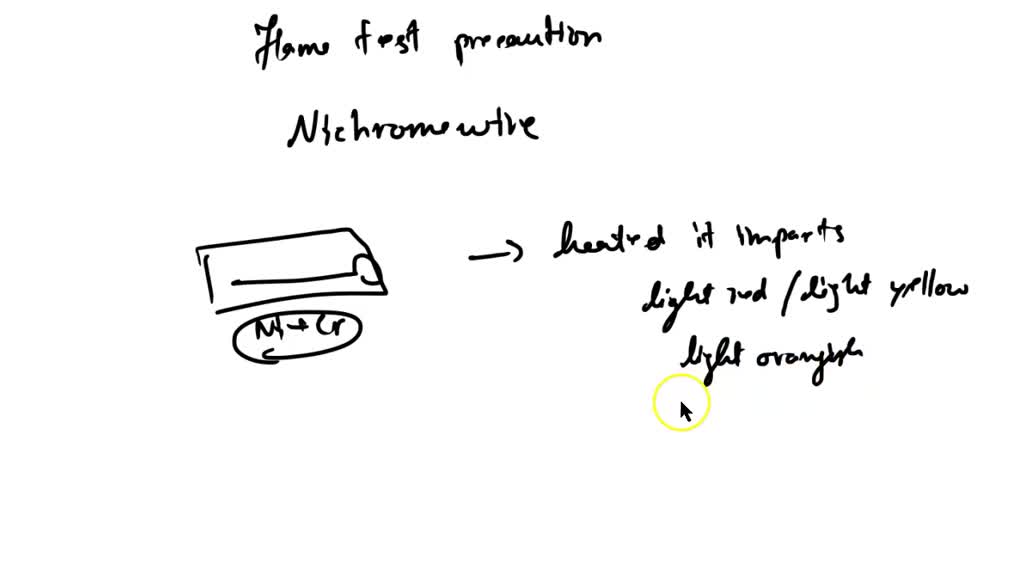 Flame test precaution
Nichrome wire
heated it imparts
light red / light yellow
light orangish
Ni + Cr